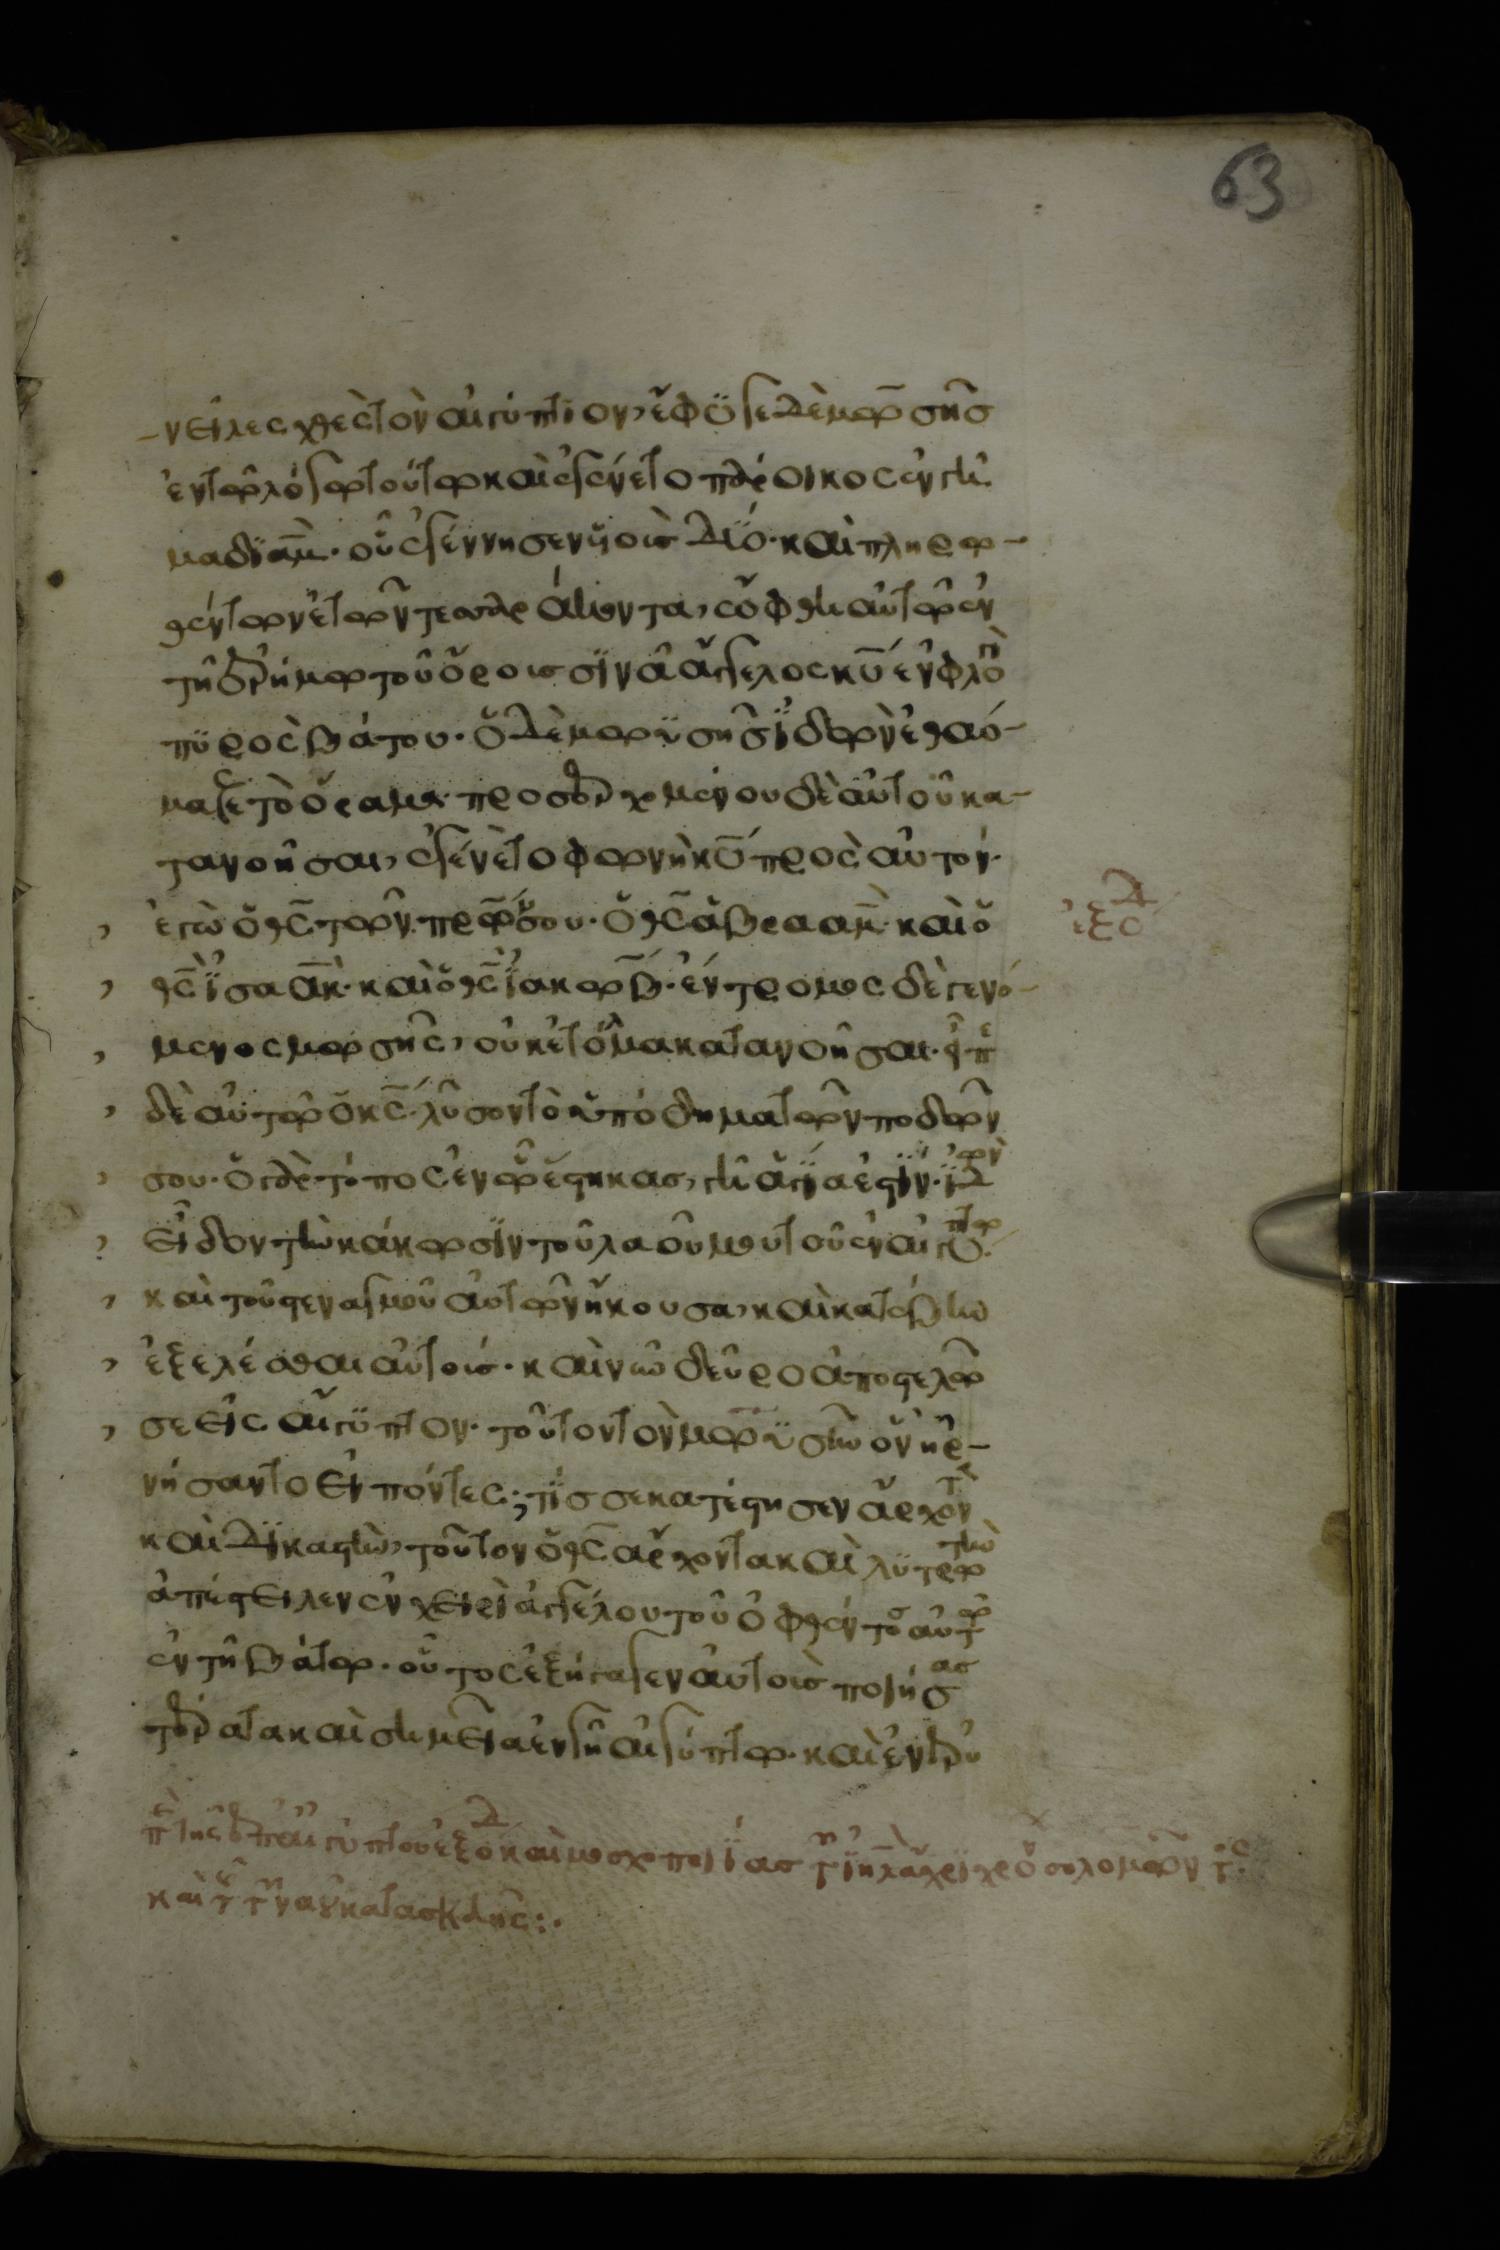 63
νεῖλες χθὲς τὸν αἰγύπτιον, ἔφυγε δὲ μωσῆς
ἐν τῷ λόγω τούτω καὶ ἐγένετο πάροικος ἐν γῆ
μαδιάμ. οὗ ἐγέννησεν υἱοὺς δύο. καὶ πληρω
θέντων ἐτῶν τεσσαράκοντα, ὤφθη αὐτῶ ἐν
τῆ ἐρήμω τοῦ ὄρους σινᾶ ἄγγελος κ̅υ̅ ἐν φλογὶ
πυρὸς βάτου. ὁ δὲ μωυσῆς ἰδὼν ἐθαύ
μαζε τὸ ὅραμα. προσερχομένου δὲ αὐτοῦ κα
τανοῆσαι, ἐγένετο φωνὴ κ̅υ̅ πρὸς αὐτόν.
ἐγὼ ὁ θ̅ς̅ τῶν π̅ρ̅ω̅ν̅ σου. ὁ θ̅ς̅ ἀβραάμ. καὶ ὁ
θ̅ς̅ ἰσαάκ. καὶ ὁ θ̅ς̅ ἰακώβ. ἔντρομος δὲ γενό
μενος μωσῆς, οὐκ ἐτόλμα κατανοῆσαι. εἶπε
δὲ αὐτῶ ὁ κ̅ς̅. λῦσον τὸ ὑπόδημα τῶν ποδῶν
σου. ὁ γὰρ τόπος ἐν ὧ ἕστηκας, γῆ ἁγία ἐστίν. ἰδὼν
εἶδον τὴν κάκωσιν τοῦ λαοῦ μου τοῦ ἐν αἰγύπτω.
καὶ τοῦ στεναγμοῦ αὐτῶν ἤκουσα, καὶ κατέβην
ἐξελέσθαι αὐτούς. καὶ νῦν δεῦρο ἀποστελῶ
σε εἰς αἴγυπτον. τοῦτον τὸν μωυσῆν ὃν ἠρ
νήσαντο εἰπόντες; τίς σε κατέστησεν ἄρχοντα
καὶ δικαστὴν, τοῦτον ὁ θ̅ς̅ ἄρχοντα καὶ λυτρωτὴν
ἀπέστειλεν ἐν χειρὶ ἀγγέλου τοῦ ὀφθέντος αὐτῶ
ἐν τῆ βάτω. οὗτος ἐξήγαγεν αὐτοὺς ποιήσας
τέρατα καὶ σημεῖα ἐν γῆ αἰγύπτω. καὶ ἐν ἐρυ
ἐξοδ
π̅ε̅ τῆς ἀπ αἰγύπτου ἐξόδου καὶ μοσχοποιίας τοῦ ἰ̅η̅λ̅ ἄχρι χρόνου σολομῶντος
καὶ τῆς τοῦ ναοῦ κατασκευῆς:.